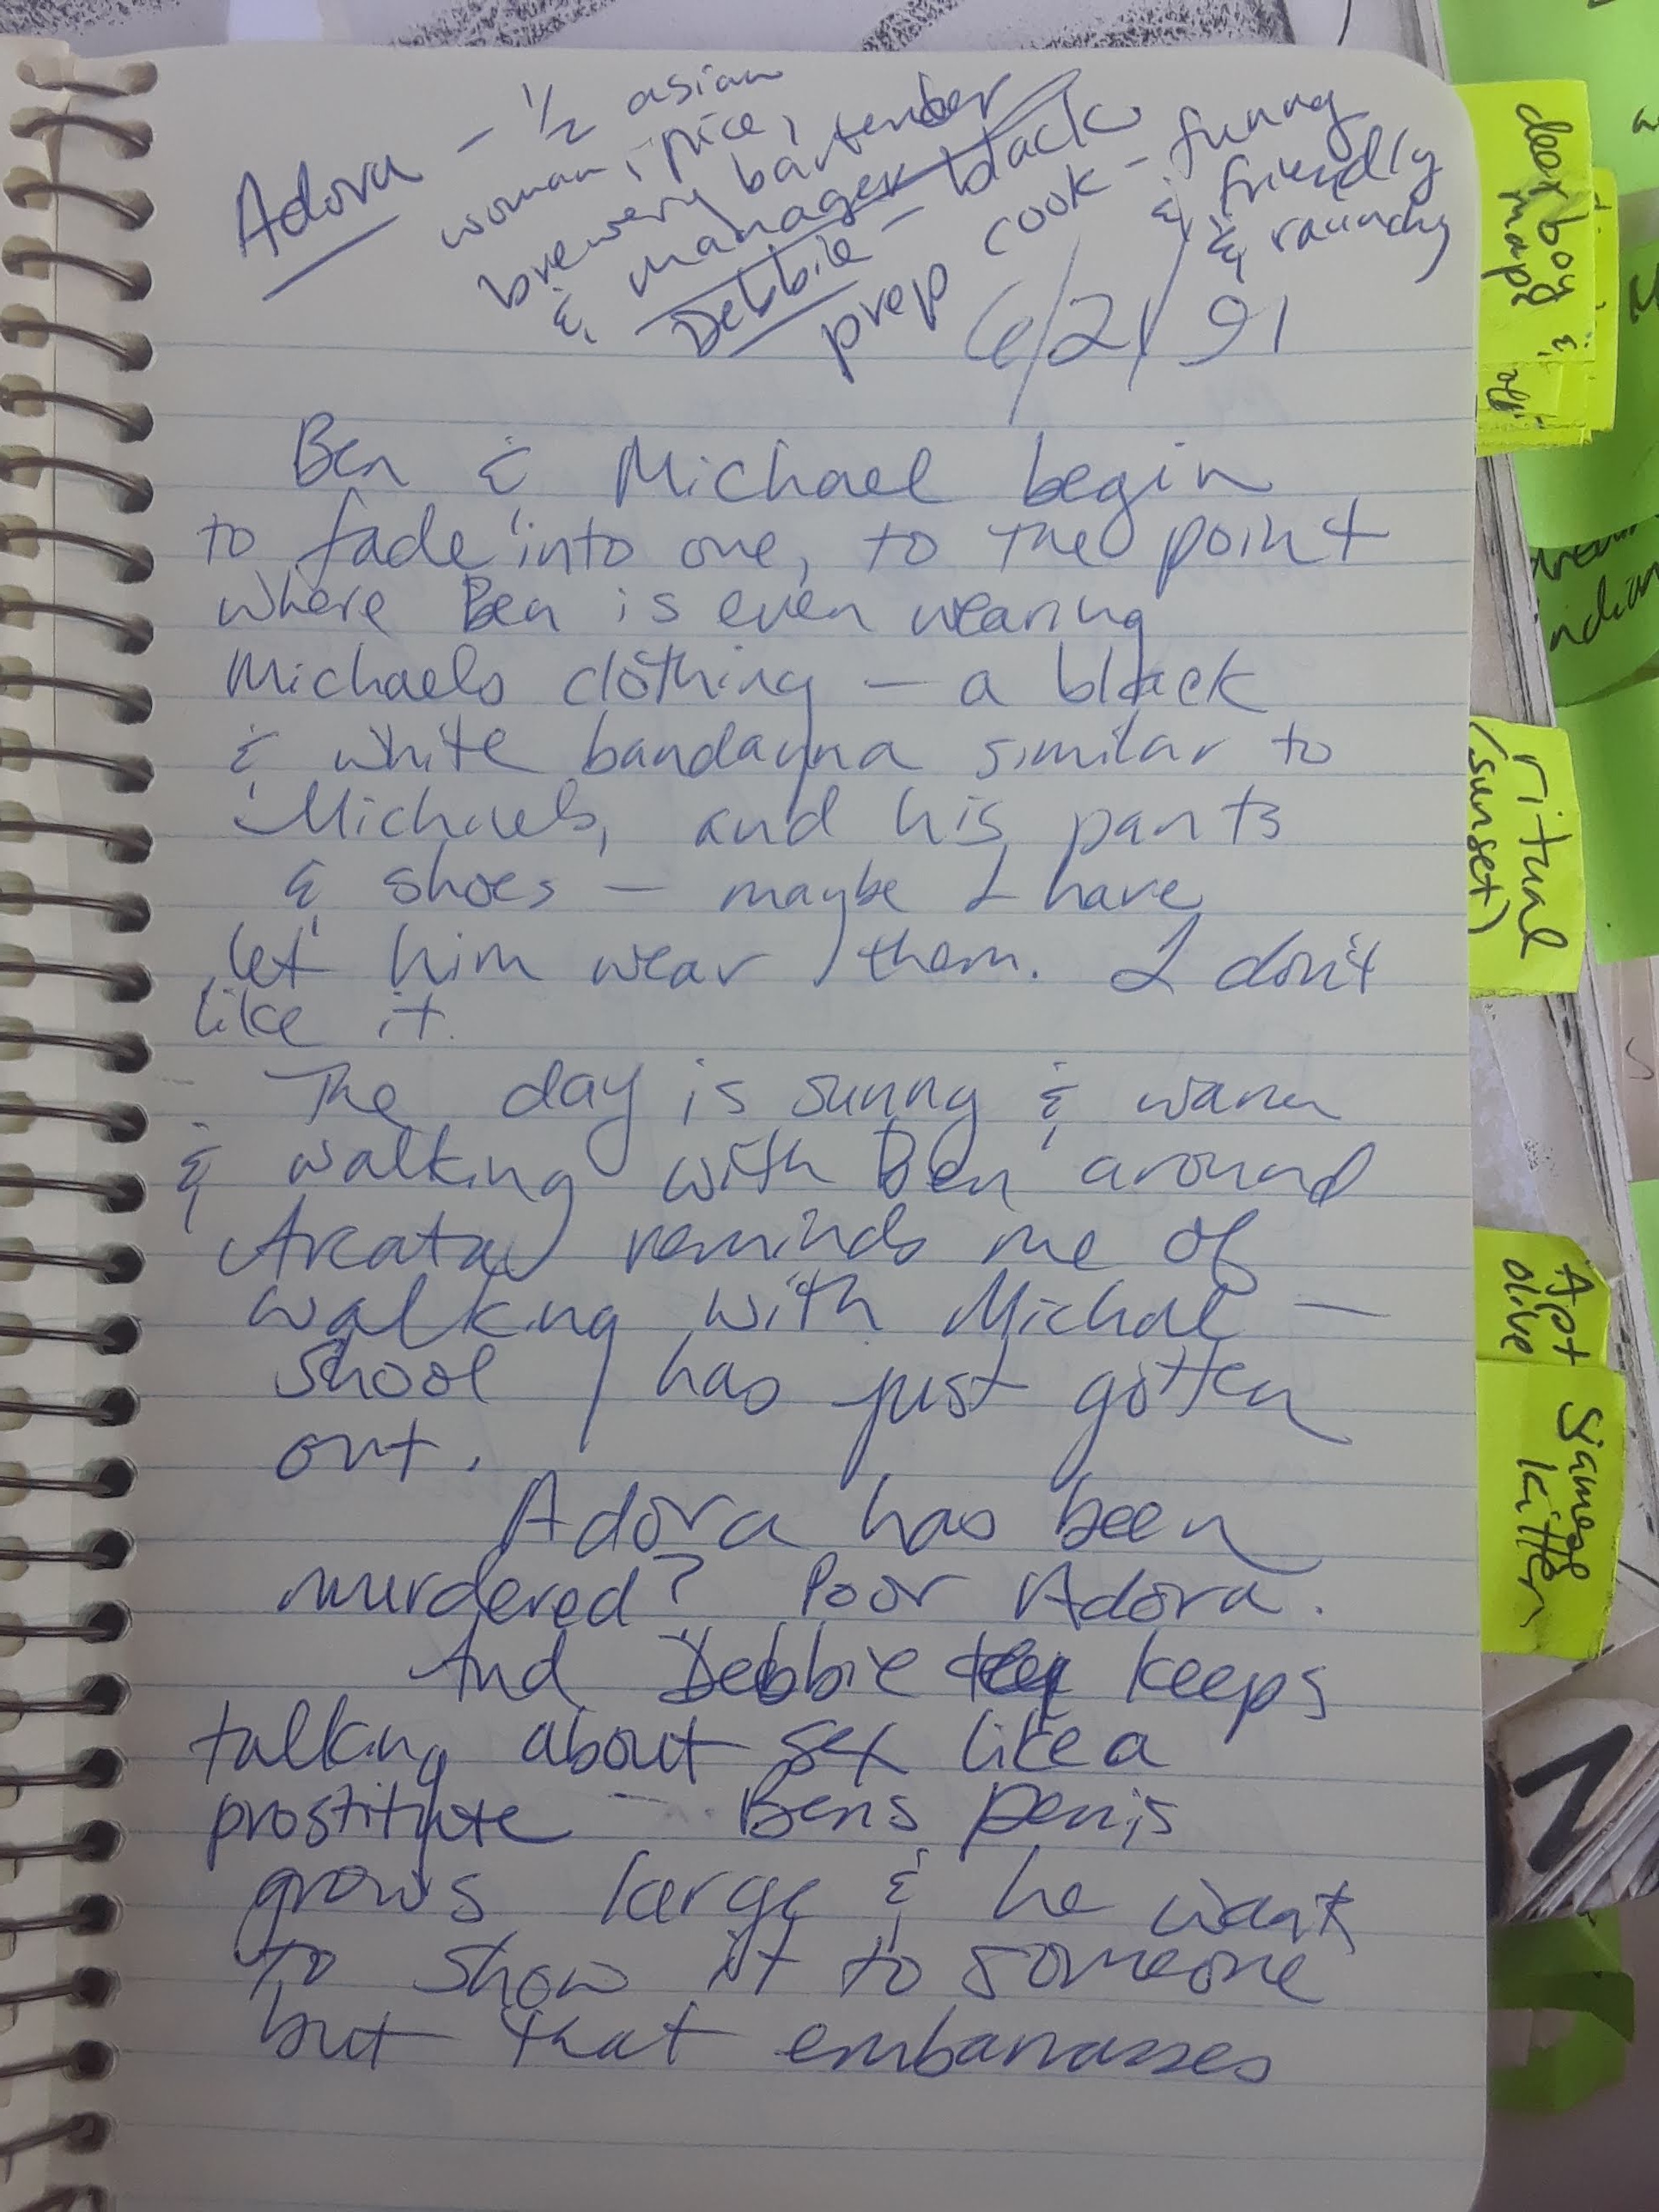 Adora - 1/2 asian
woman, nice,
brewery bartender
& manager
Debbie - black
prep cook - funny
& friendly
& raunchy
6/21/91
Ben & Michael begin
to fade into one, to the point
where Ben is even wearing
Michaels clothing - a black
& white bandanna similar to
Michaels, and his pants
& shoes - maybe I have
let him wear them. I don't
like it.
The day is sunny & warm
& walking with Ben around
Arcata reminds me of
walking with Michal -
Shool has just gotten
out.
Adora has been
murdered? Poor Adora.
And Debbie keeps
talking about sex like a
prostitute - Bens penis
grows large & he want
to show it to someone
but that embarrasses
deer boy &
map
ritual
(sunset)
Apt
olive
Siamese
kitten